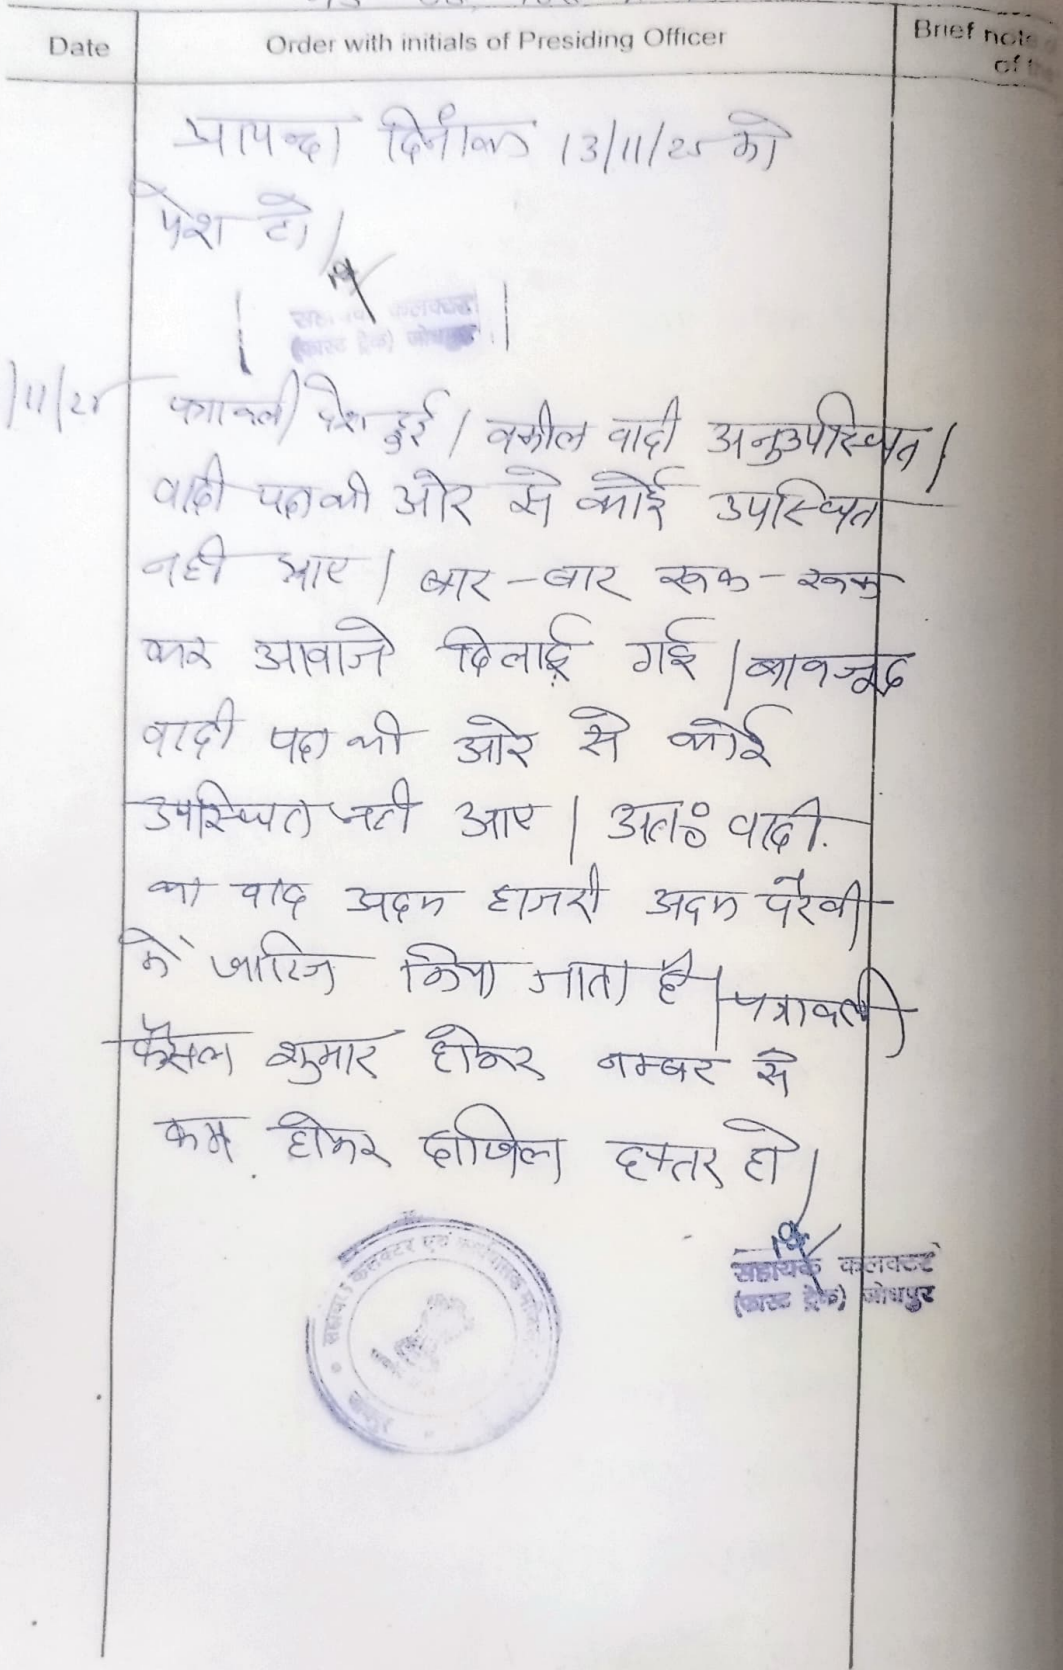 Date
Order with initials of Presiding Officer
Brief note
of the
आयन्दा दिनांक 13/11/25 को
पेश हो।
सहायक कलक्टर
(फास्ट ट्रेक) जोधपुर
/11/25 पत्रावली पेश हुई। वकील वादी अनुउपस्थित।
वादी पक्ष की ओर से कोई उपस्थित
नही आए। बार-बार रूक-रूक
कर आवाजे दिलाई गई। बावजूद
वादी पक्ष की ओर से कोई
उपस्थित नही आए। अतः वादी
का वाद अदम हाजरी अदम पैरवी
में खारिज किया जाता है। पत्रावली
फैसल शुमार होकर नम्बर से
कम होकर दाखिल दफ्तर हो।
सहायक कलक्टर
(फास्ट ट्रेक) जोधपुर
सहायक कलक्टर एवं कार्यपालक